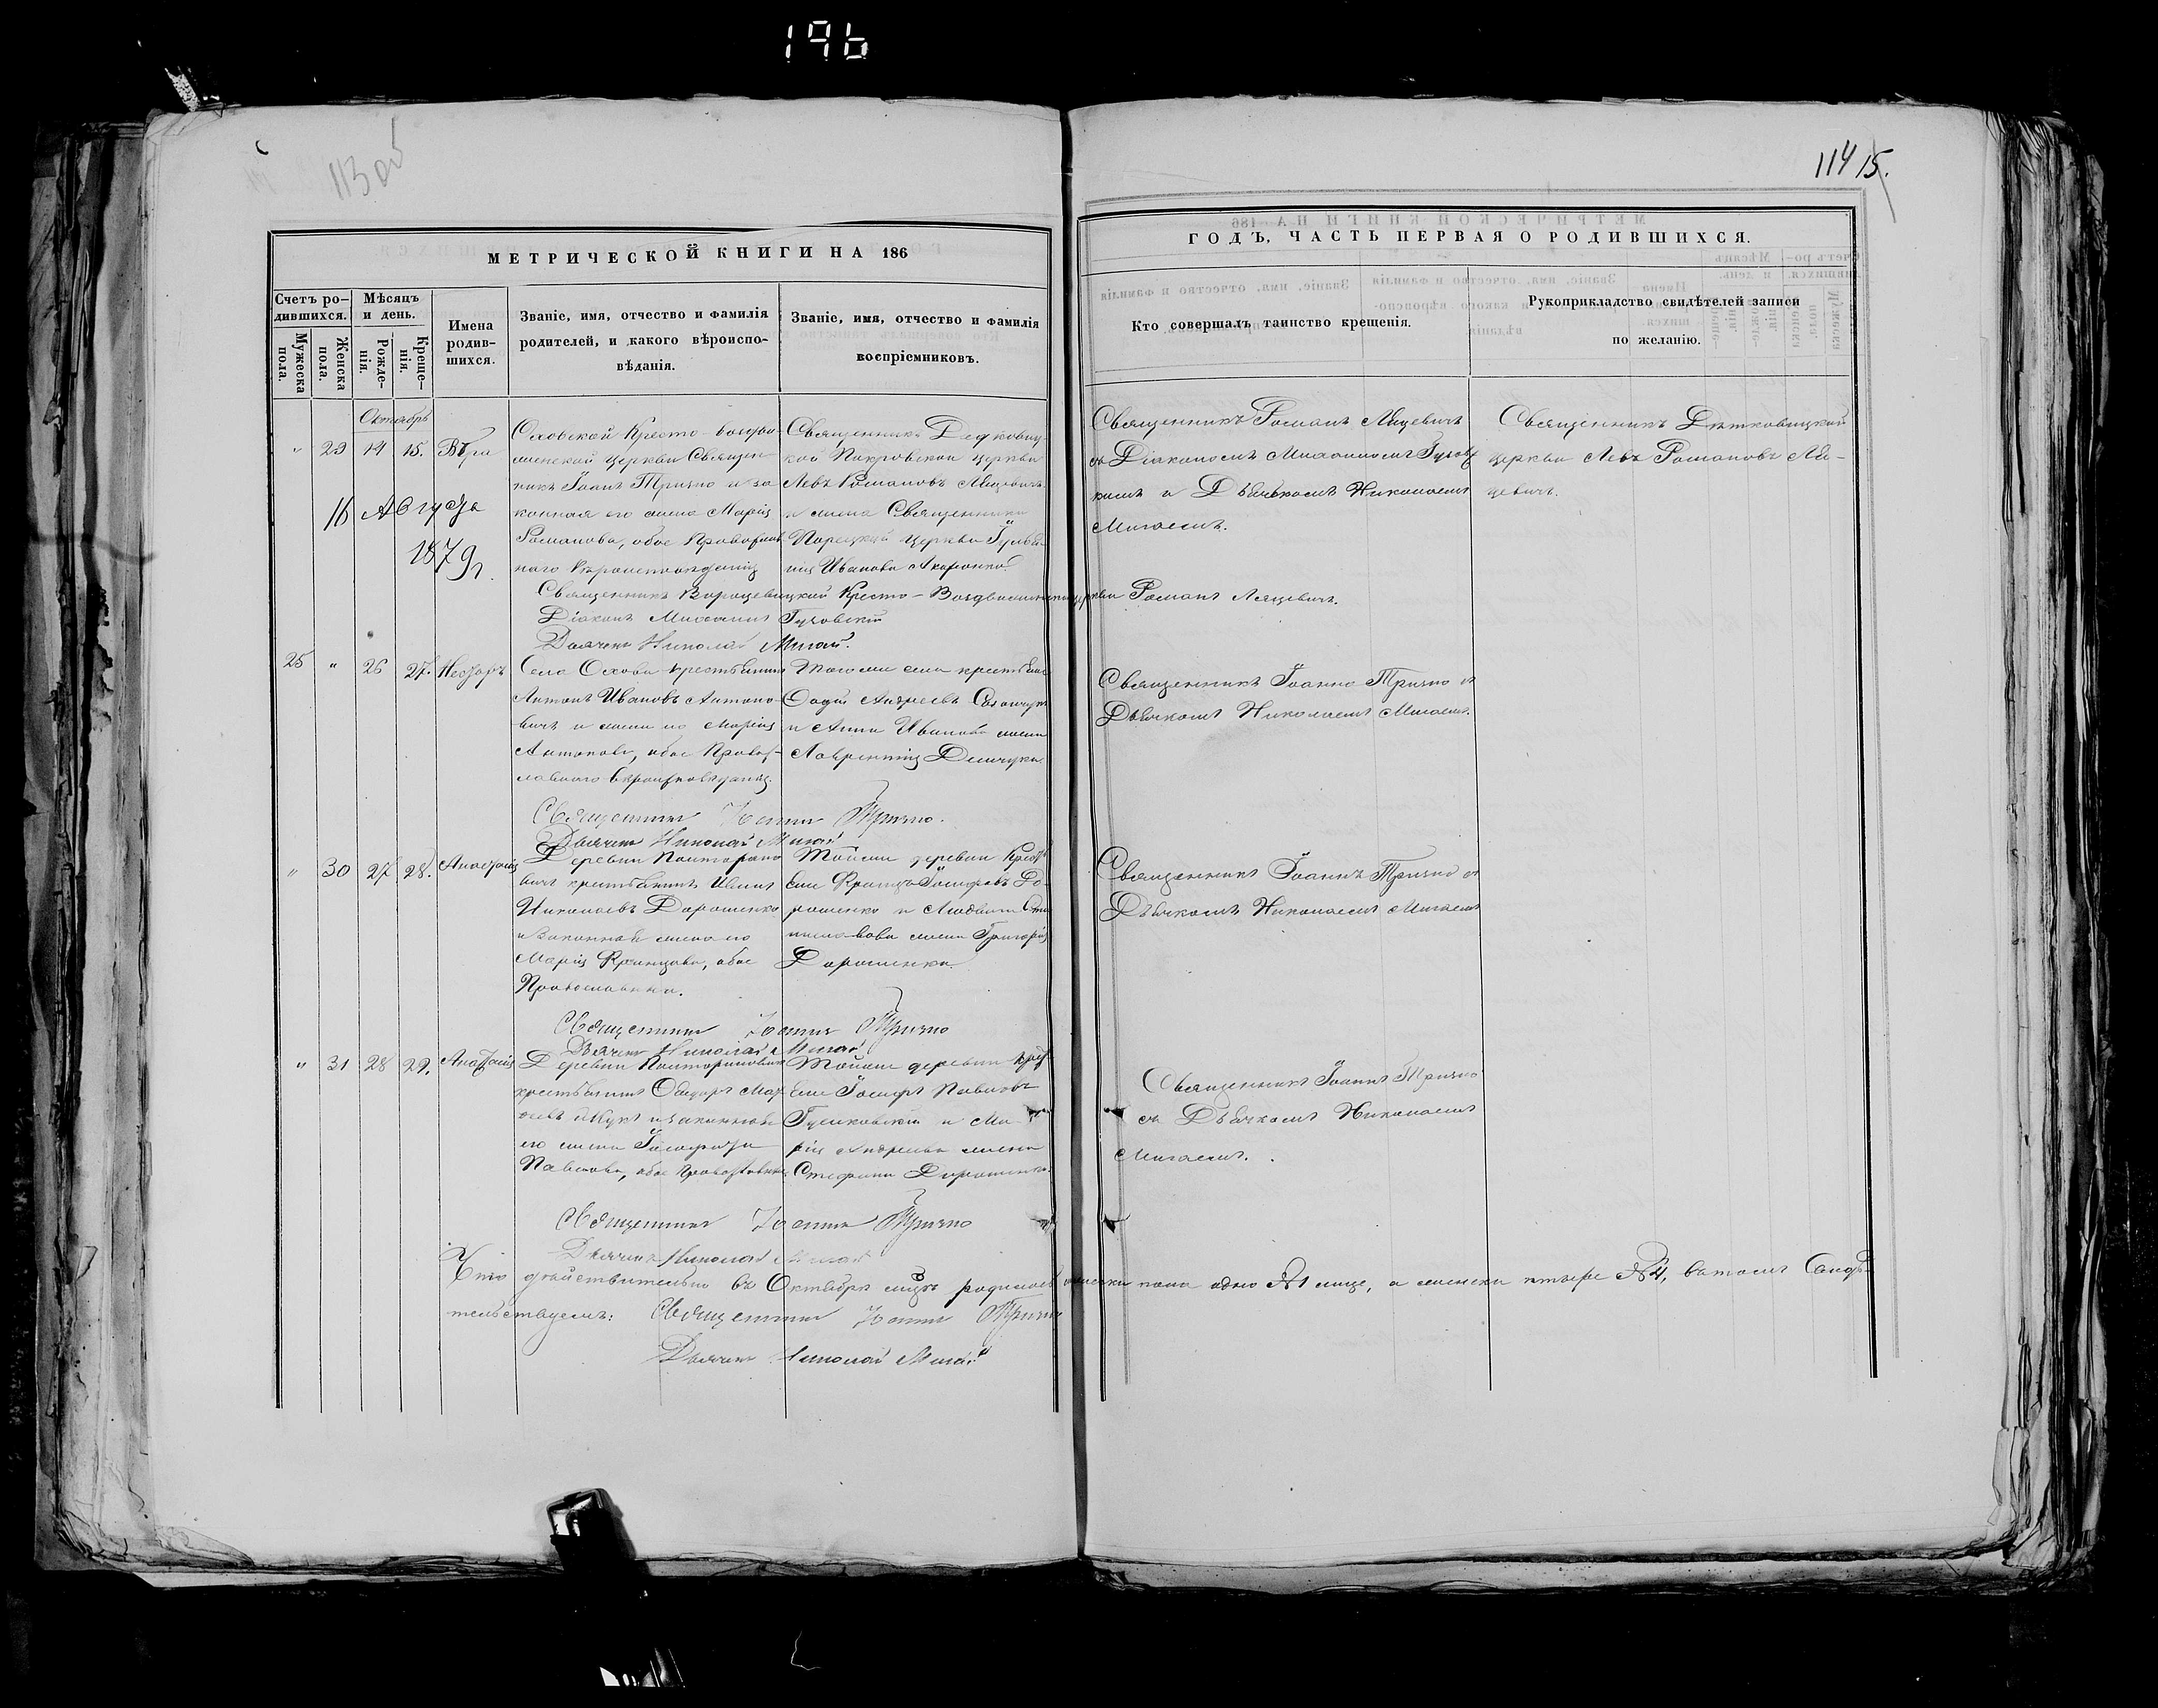 196
113 об
114 15.
МЕТРИЧЕСКОЙ КНИГИ НА 186
ГОДЪ, ЧАСТЬ ПЕРВАЯ О РОДИВШИХСЯ.
Счетъ ро-
дившихся.
Мужеска
пола.
Женска
пола.
Мѣсяцъ
и день.
Рожде-
нія.
Креще-
нія.
Имена
родив-
шихся.
Званіе, имя, отчество и фамилія
родителей, и какого вѣроиспо-
вѣданія.
Званіе, имя, отчество и фамилія
воспріемниковъ.
Кто совершалъ таинство крещенія.
Рукоприкладство свидѣтелей записи
по желанію.
Октябрь
" 29 14 15. Вѣра
16 Августа
1879 г.
Оховской Кресто-воздви-
женской церкви Священ-
никъ Іоаннъ Тризно и за-
конная его жена Марія
Романова, обое Православ-
наго вѣроисповѣданія
Священникъ
кой Покровской церкви
Левъ Романовъ Ляцевичъ
и жена Священника
Порецкой церкви
Иванова
Священникъ Романъ Ляцевичъ
съ Діакономъ
и Дьячкомъ Николаемъ
Мигаемъ.
Священникъ
церкви Левъ Романовъ Ля-
цевичъ.
Священникъ Кресто-Воздвиженской церкви Романъ Ляцевичъ.
Діаконъ
Дьячекъ Николай Мигай.
25 " 26 27. Несторъ
Села Охова крестьянинъ
Антонъ Ивановъ Антоно-
вичъ и жена его Марія
Антонова, обое Правос-
лавнаго вѣроисповѣданія.
Тогоже села крестьян.
Андреевъ
и Анна Иванова жена
Лаврентія
Священникъ Іоаннъ Тризно съ
Дьячкомъ Николаемъ Мигаемъ.
Священникъ Іоаннъ Тризно.
Дьячекъ Николай Мигай
" 30 27 28. Анастасія
Деревни
крестьянинъ
Николаевъ Дорошенко
и Законная жена его
Марія Францова, обое
Православные.
Тойже деревни Крест
Францъ Іосифовъ До-
рошенко и Людвига Ста-
ниславова жена Григорія
Дорошенка.
Священникъ Іоаннъ Тризно съ
Дьячкомъ Николаемъ Мигаемъ
Священникъ Іоаннъ Тризно
Дьячекъ Николай Мигай
" 31 28 29. Анастасія
Деревни
крестьянинъ
и законная
его жена
Павлова, обое Православные
Тойже деревни
Іосифъ Павловъ
и Ма-
рія Андреева жена
Стефана Дорошенка.
Священникъ Іоаннъ Тризно
съ Дьячкомъ Николаемъ
Мигаемъ.
Священникъ Іоаннъ Тризно
Дьячекъ Николай Мигай
Что дѣйствительно въ Октябрѣ родилось пола одно №1 лице, а женска №4, въ томъ Свидѣ-
тельствуемъ: Священникъ Іоаннъ Тризно
Дьячекъ Николай Мигай